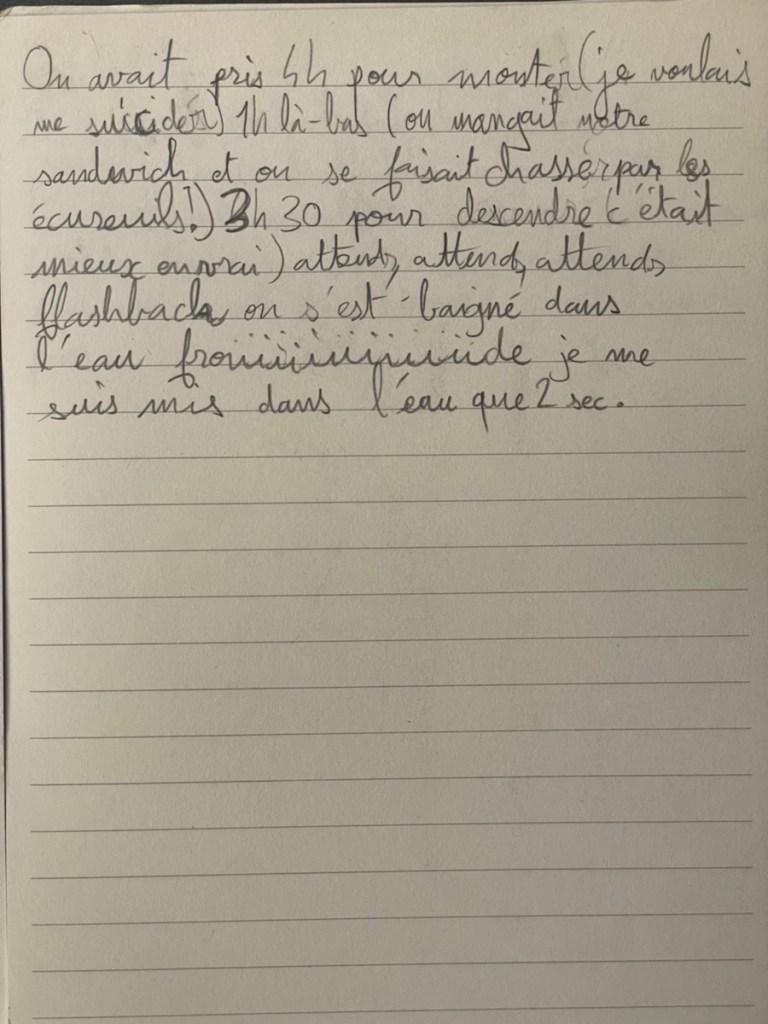 On avait pris 4h pour monter (je voulais
me suicider) 1h là-bas (on mangait notre
sandwich et on se faisait chasser par les
écureuils!) 3h 30 pour descendre (c'était
mieux en vrai) attends, attends, attends,
flashback on s'est baigné dans
l'eau froiiiiiiiiiiiiide je me
suis mis dans l'eau que 2 sec.